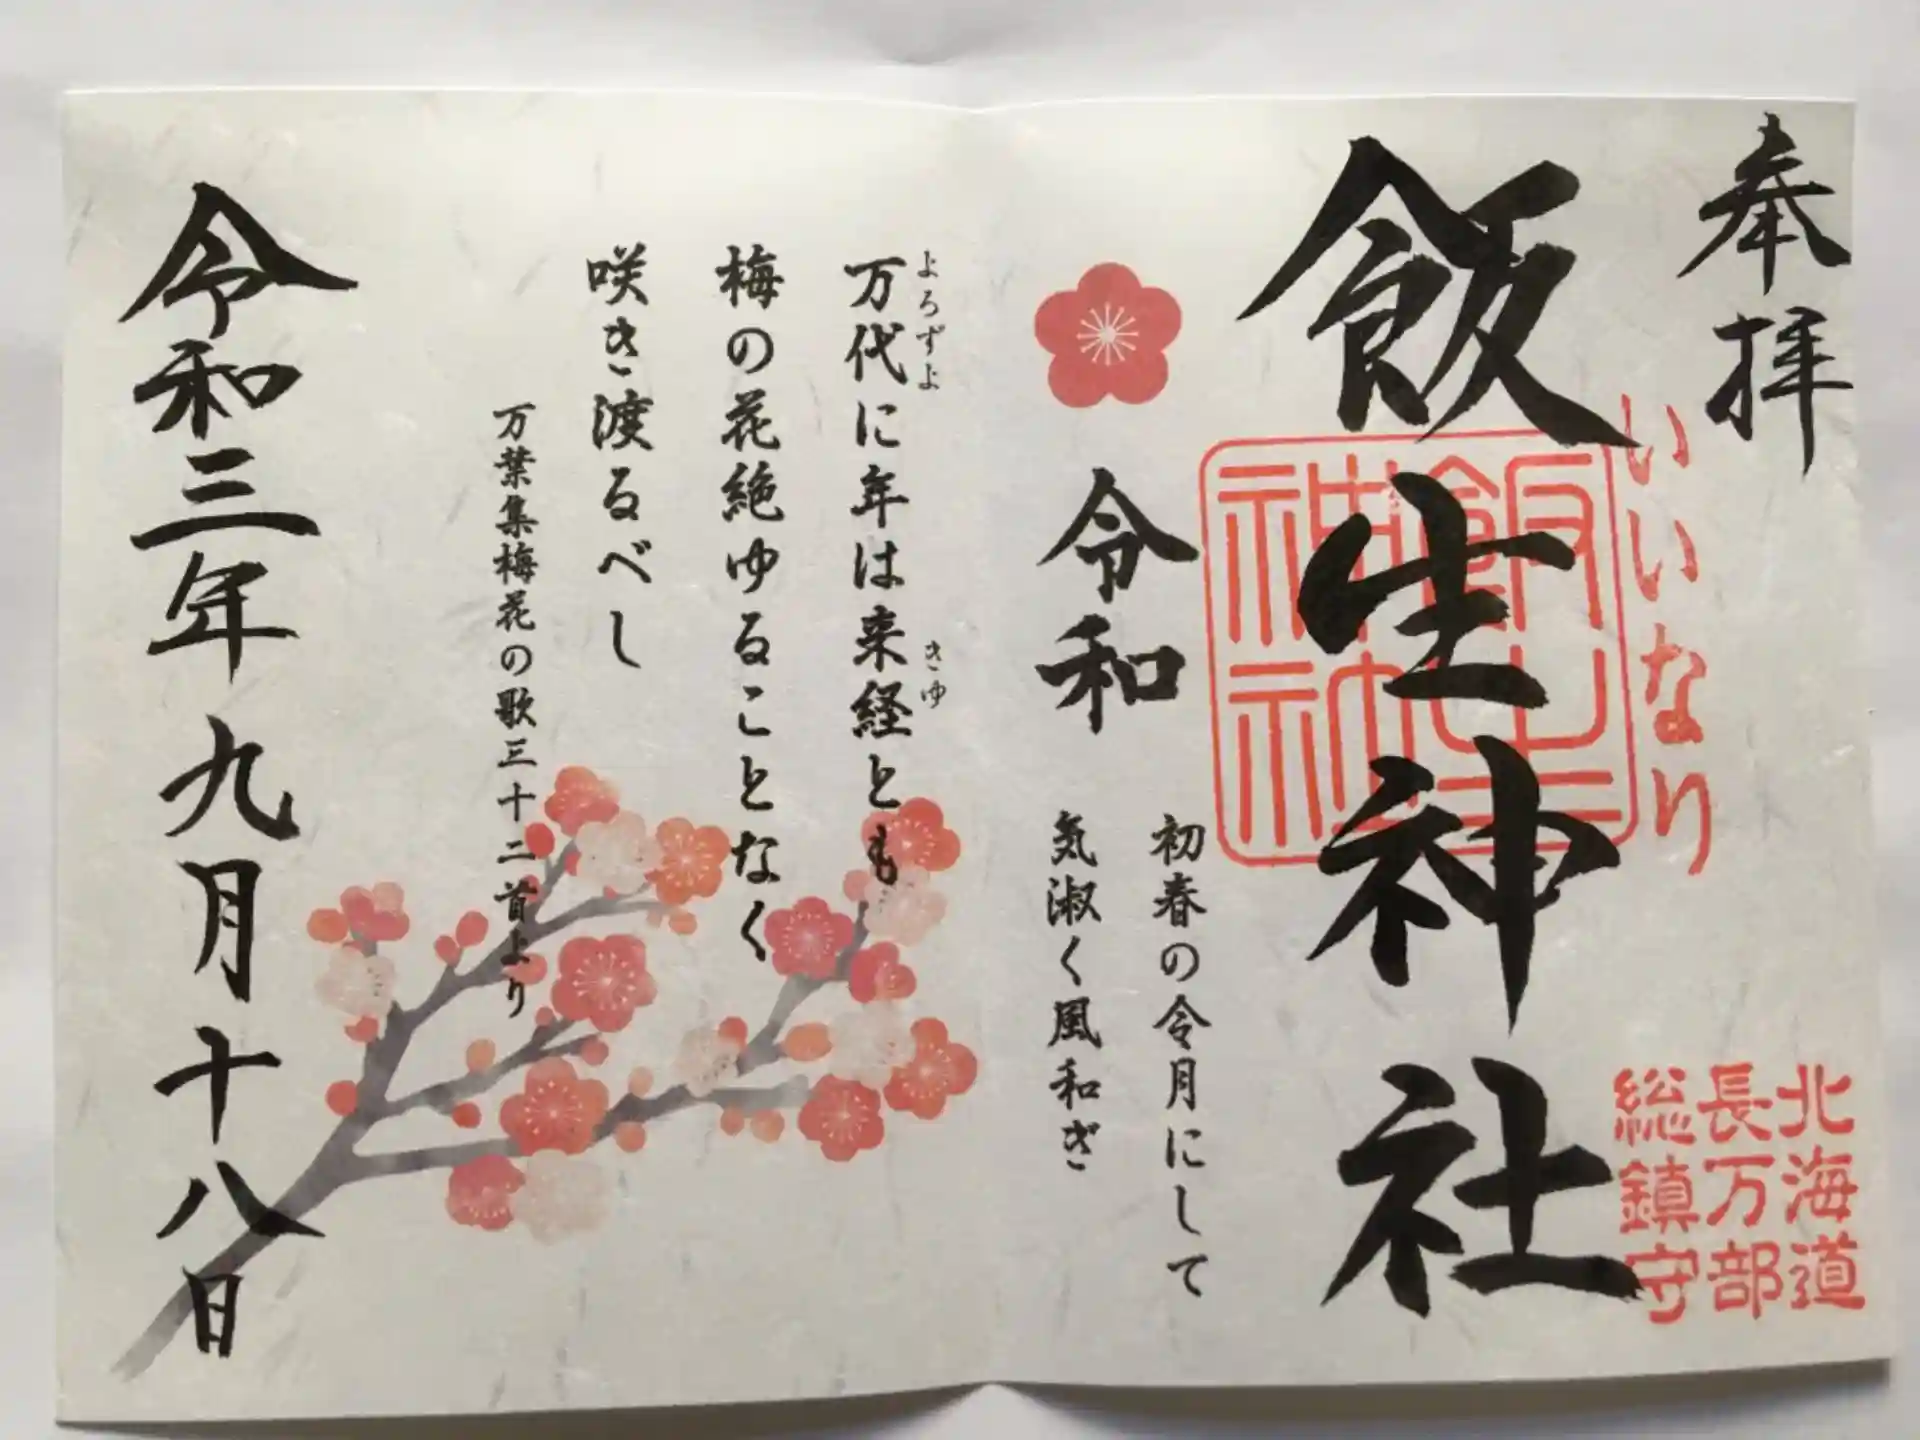 奉拝
いいなり
北海道
長万部
総鎮守
飯生神社
飯生
神社
令和
初春の令月にして
気淑く風和ぎ
よろずよ
きゆ
万代に年は来経とも
梅の花絶ゆることなく
咲き渡るべし
万葉集梅花の歌三十二首より
令和三年九月十八日